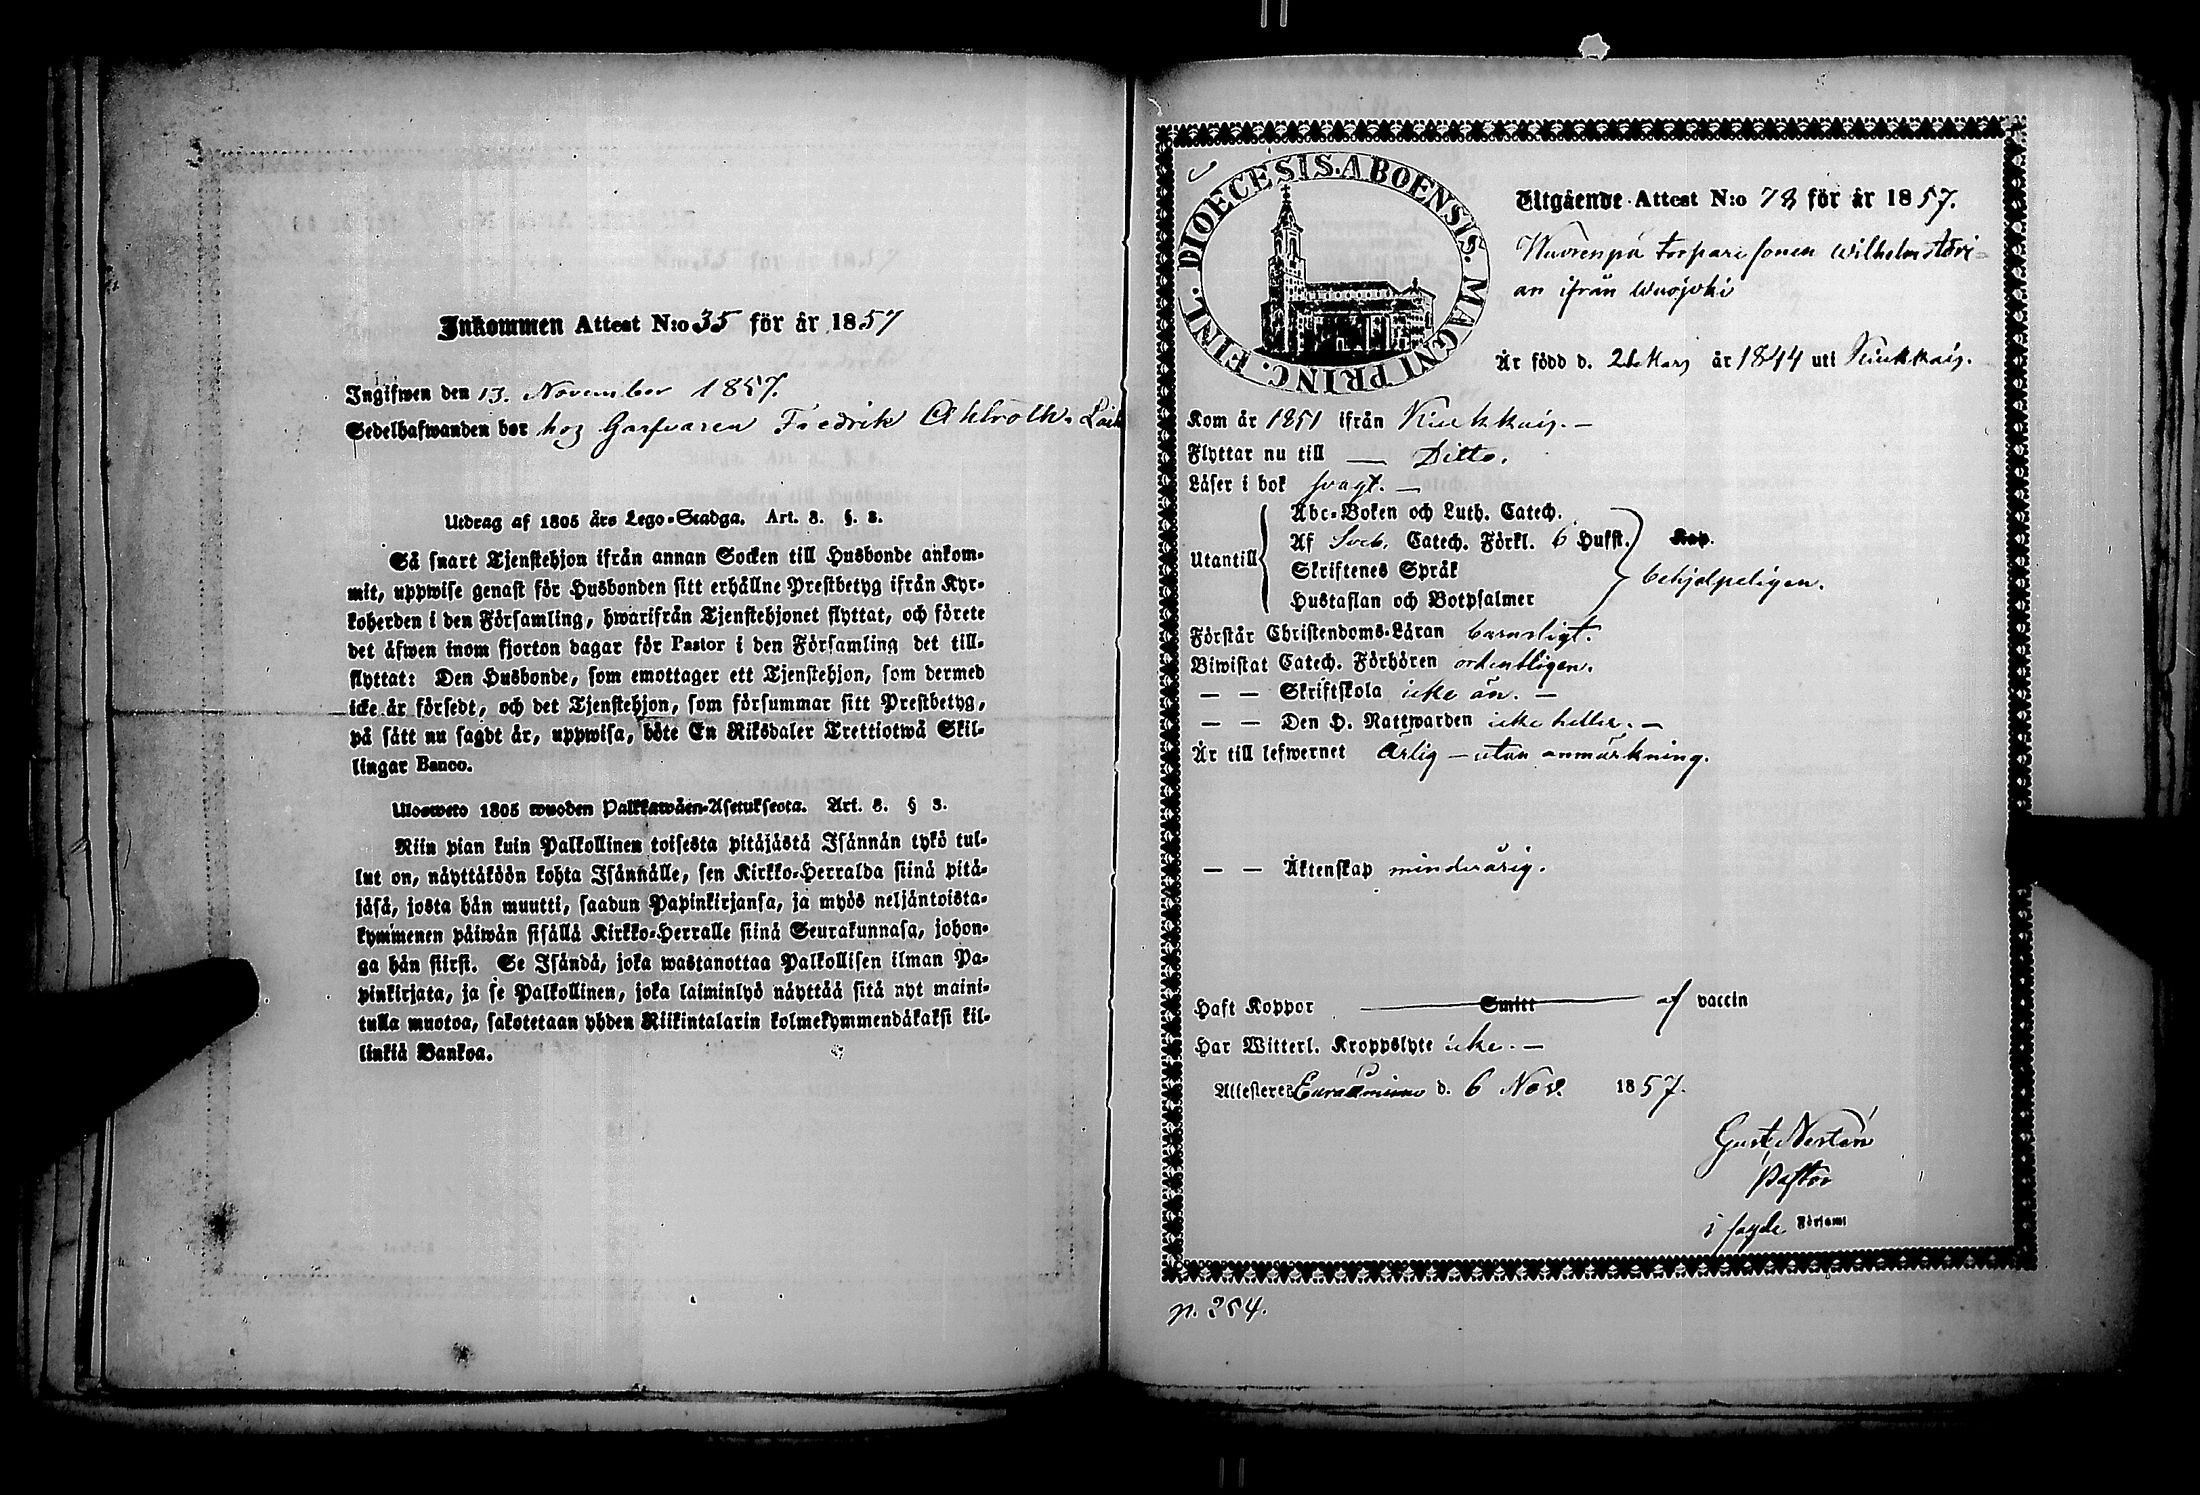 Inkommen Attest N:o 35 för år 1857
Ingifwen den 13. November 1857.
Sedelhafwanden bor hoz Garfvaren Fredrik Ahlroth
Utdrag af 1805 års Lego-Stadga. Art. 3. §. 3.
Så snart Tjenstehjon ifrån annan Socken till Husbonde ankom-
mit, uppwise genast för Husbonden sitt erhållne Prestbetyg ifrån Kyr-
koherden i den Församling, hwarifrån Tjenstehjonet flyttat, och förete
det äfwen inom fjorton dagar för Pastor i den Församling det till-
flyttat: Den Husbonde, som emottager ett Tjenstehjon, som dermed
icke är försedt, och det Tjenstehjon, som försummar sitt Prestbetyg,
på sätt nu sagdt är, uppwisa, böte En Riksdaler Trettiotwå Skil-
lingar Banco.
Ulosweto 1805 wuoden Palkkawäen-Asetuksesta. Art. 3. § 3.
Niin pian kuin Palkollinen toisesta pitäjästä Isännän tykö tul-
lut on, näyttäköön kohta Isännälle, sen Kirkko-Herralda siinä pitä-
jäsä, josta hän muutti, saadun Papinkirjansa, ja myös neljäntoista-
kymmenen päiwän sisällä Kirkko-Herralle siinä Seurakunnasa, johon-
ga hän siirsi. Se Isändä, joka wastanottaa Palkollisen ilman Pa-
pinkirjata, ja se Palkollinen, joka laiminlyö näyttää sitä nyt maini-
tulla muotoa, sakotetaan yhden Riikintalarin kolmekymmendäkaksi kil-
linkiä Bankoa.
DIOECESIS. ABOENSIS. MAGNI PRINC. FINL.
Utgående Attest N:o 78 för år 1857.
Wuorenpä torparesonen Wilhelm
an ifrån Wuojoki
Är född d. Mars år 1844 uti Kiukkais.
Kom år 1851 ifrån Kiukkais. —
Flyttar nu till — Ditto.
Läser i bok svagt. —
Utantill
Abc-Boken och Luth. Catech.
Af Sveb. Catech. Förkl. 6 Husst. Kap.
Skriftenes Språk
behjelpeligen.
Hustaflan och Botpsalmer
Förstår Christendoms-Läran barnsligt.
Biwistat Catech. Förhören ordentligen.
— — Skriftskola icke än. —
— — Den H. Nattwarden icke heller. —
Är till lefwernet Ärlig — utan anmärkning.
— — Äktenskap minderårig.
Haft Koppor Smitt af vaccin
Har Witterl. Kroppslyte icke. —
Attesteres Euraåminne d. 6 Nov. 1857.
Gust. Nestén
Pastor
i sagde Församl
p. 254.